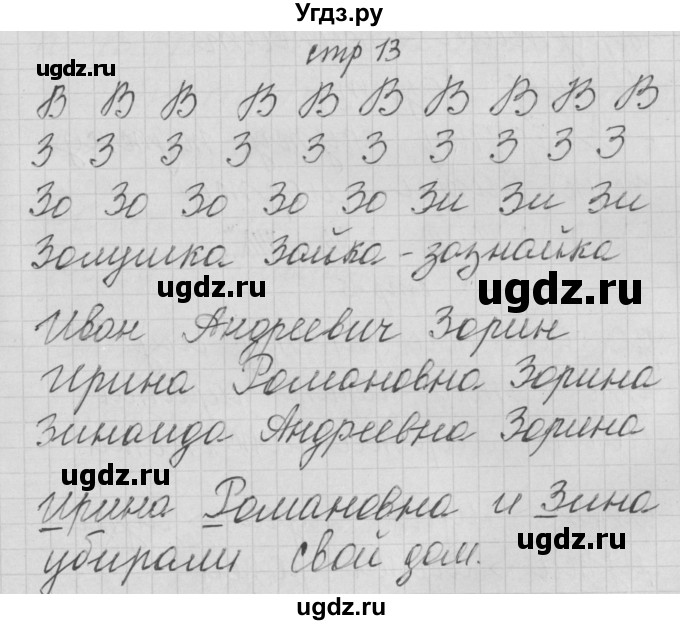 Угдз.ру
стр 13
ugdz.ru
В В В В В В В В В В
З З З З З З З З З З
Зо Зо Зо Зо Зо Зи Зи Зи
Золушка Зайка-зазнайка
ugdz.ru ugdz.ru
Иван Андреевич Зорин
Ирина Романовна Зорина
Зинаида Андреевна Зорина
ugdz.ru
Ирина Романовна и Зина
убирали свой дом.
ugdz.ru
ugdz.ru